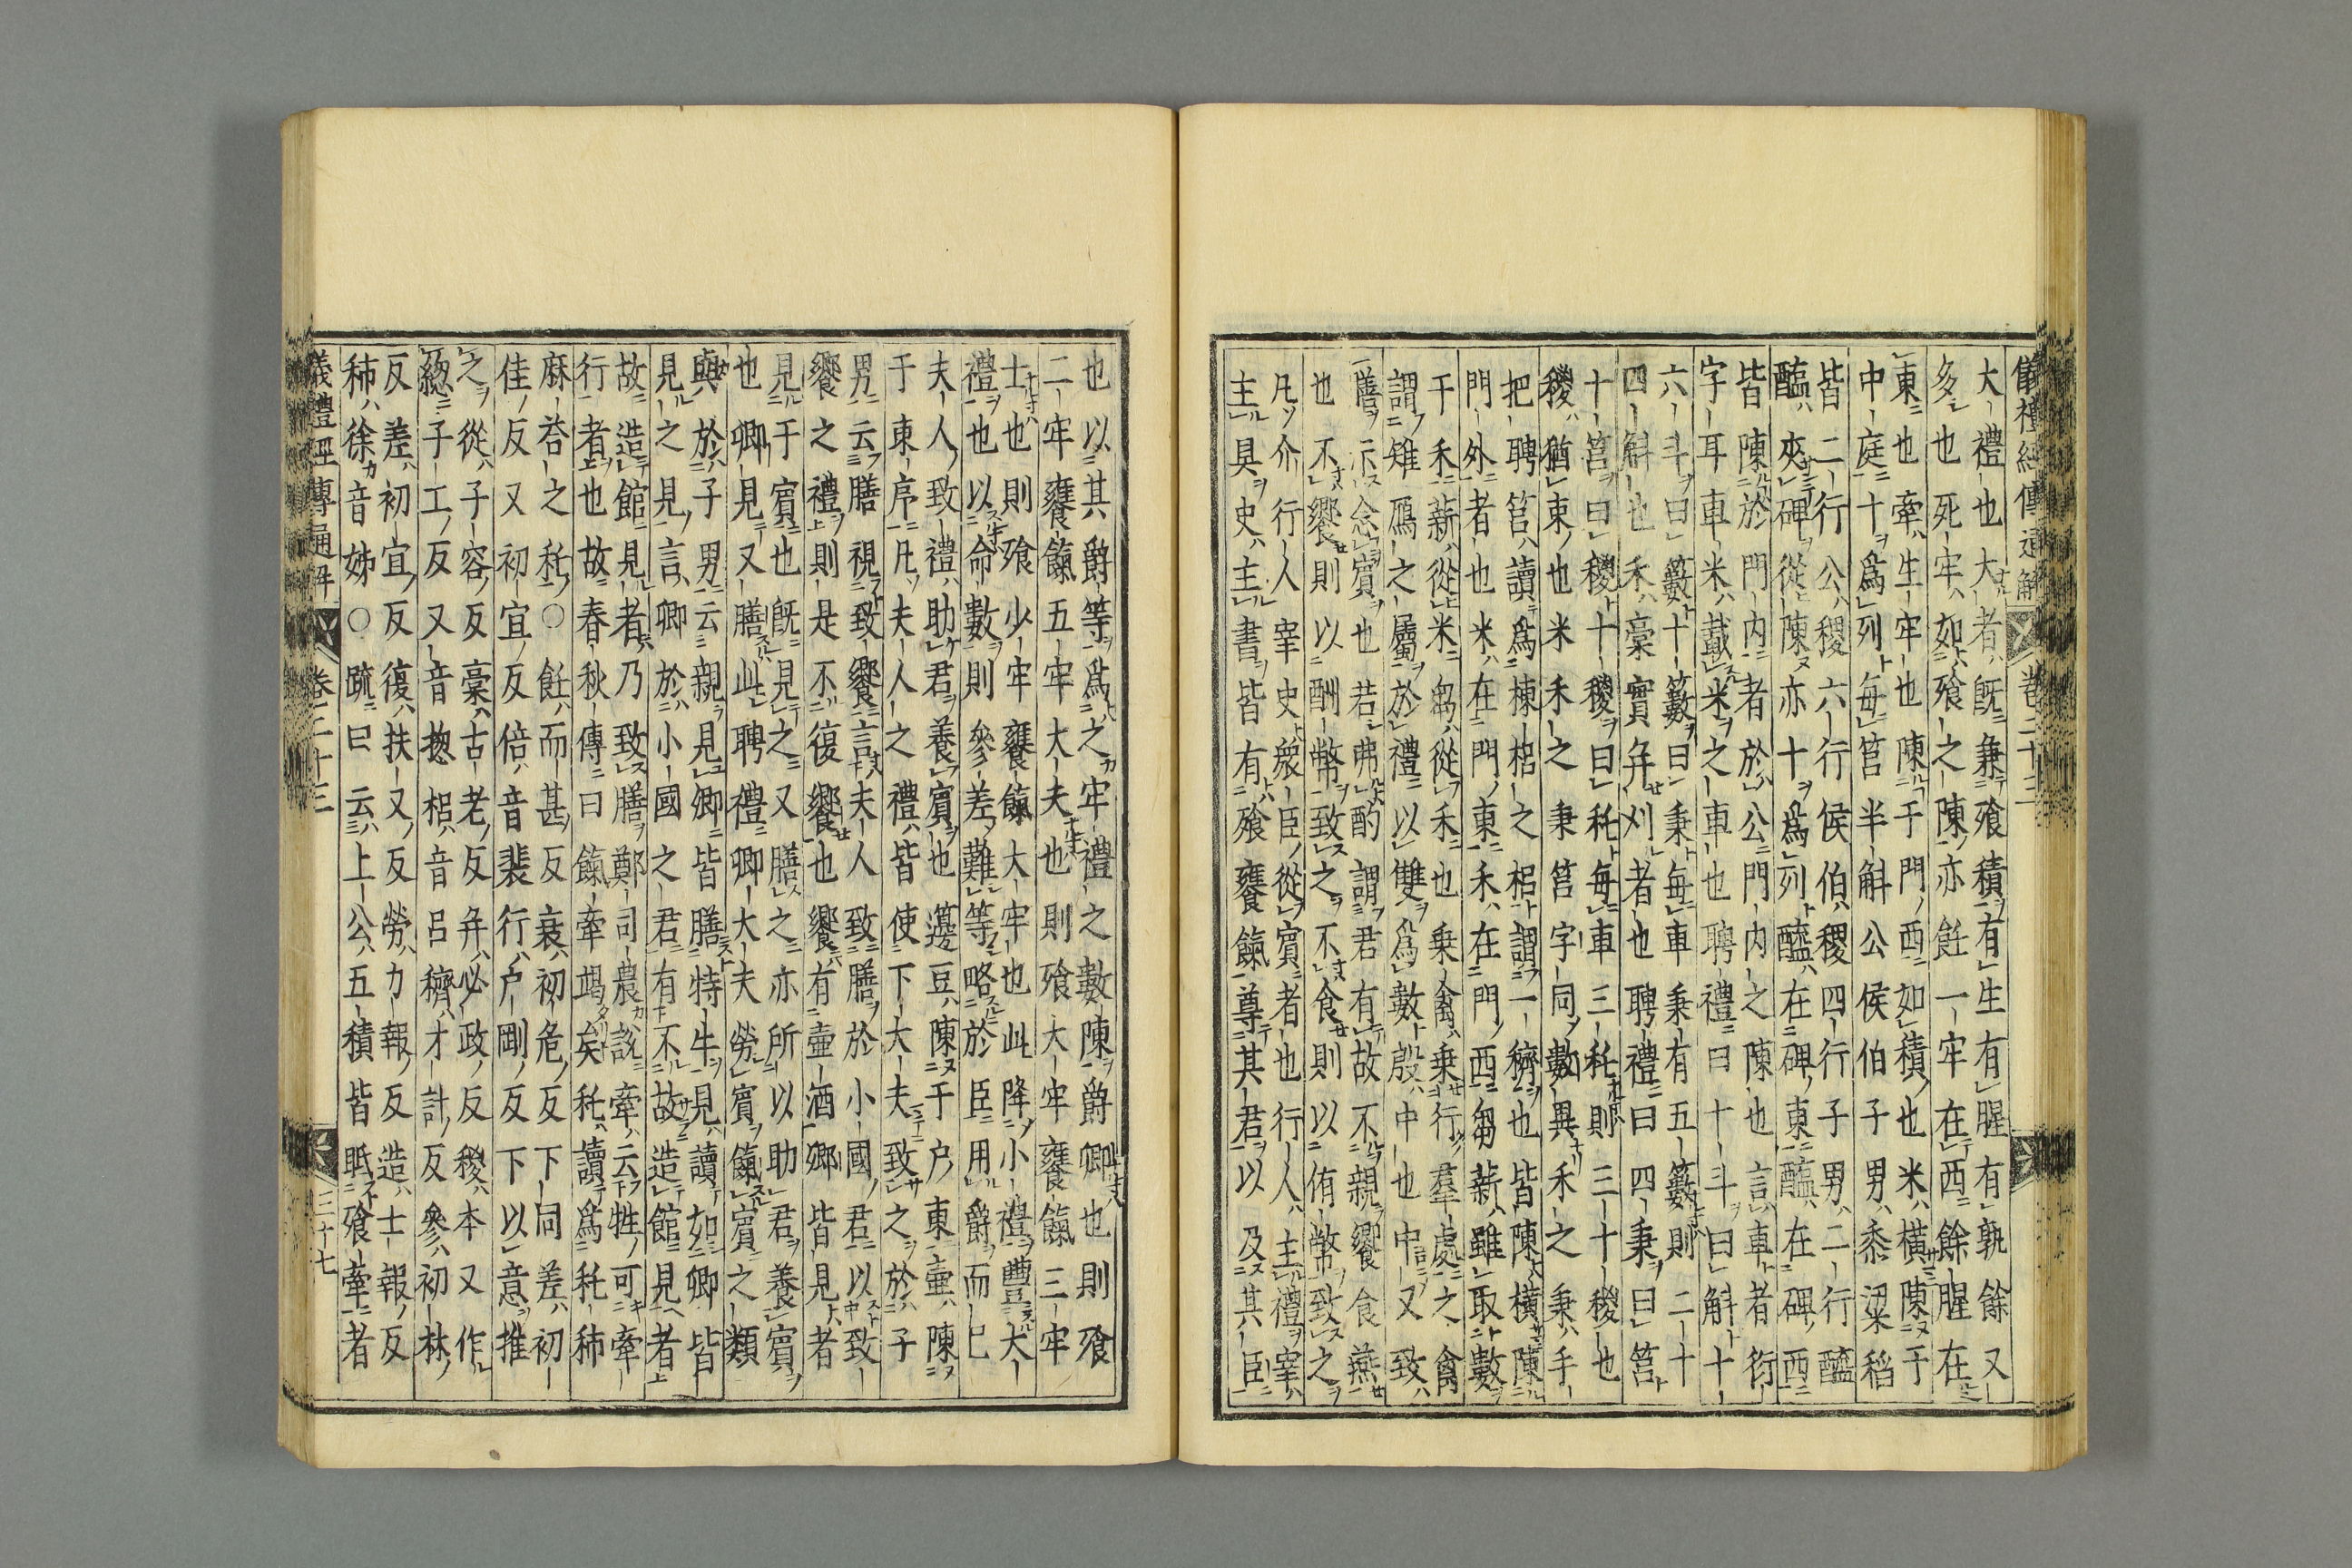 儀禮經傳通解 卷二十三
大禮也大者既兼飱積有生有腥有孰餘又
多也死牢如飱之陳亦飪一牢在西餘腥在
東也牽生牢也陳于門西如積也米橫陳于
中庭十爲列每筥半斛公侯伯子男黍粱稻
皆二行公稷六行侯伯稷四行子男二行醯
醢夾碑從陳亦十爲列醯在碑東醢在碑西
皆陳於門内者於公門内之陳也言車者衍
字耳車米載米之車也聘禮曰十斗曰斛十
六斗曰籔十籔曰秉每車秉有五籔則二十
四斛也禾稾實并刈者也聘禮曰四秉曰筥
十筥曰稯十稯曰秅每車三秅則三十稯也
稯猶束也米禾之秉筥字同數異禾之秉手
把聘筥讀爲棟梠之梠謂一穧也皆陳橫陳
門外者也米在門東禾在門西芻薪雖取數
于禾薪從米芻從禾也乘禽乘行羣處之禽
謂雉鴈之屬於禮以雙爲數殷中也中又致
膳示念賓也若弗酌謂君有故不親饗食燕
也不饗則以酬幣致之不食則以侑幣致之
凡介行人宰史衆臣從賓者也行人主禮宰
主具史主書皆有飱饔餼尊其君以及其臣
也以其爵等爲之牢禮之數陳爵卿也則飱
二牢饔餼五牢大夫也則飱大牢饔餼三牢
士也則飱少牢饔餼大牢也此降小禮豐大
禮也以命數則參差難等略於臣用爵而已
夫人致禮助君養賓也籩豆陳于户東壷陳
于東序凡夫人之禮皆使下大夫致之於子
男云膳視致饗言夫人致膳於小國君以致
饗之禮則是不復饗也饗有壷酒卿皆見者
見于賓也既見之又膳之亦所以助君養賓
也卿見又膳此聘禮卿大夫勞賓餼賓之類
與於子男云親見卿皆膳特牛見讀如卿皆
見之見言卿於小國之君有不故造館見者
故造館見者乃致膳鄭司農說牽云牲可牽
行者也故春秋傳曰餼牽竭矣秅讀爲秅秭
麻荅之秅〇飪而甚反衰初危反下同差初
佳反又初宜反倍音裴行户剛反下以意推
之從子容反稾古老反并必政反稯本又作
緫子工反又音揔梠音吕穧才計反參初林
反差初宜反復扶又反勞力報反造士報反
秭徐音姊〇䟽曰云上公五積皆眂飱牽者
儀禮經傳通解 卷二十三 三十七